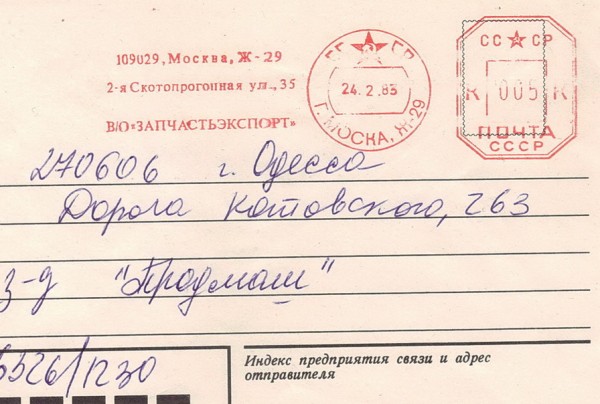 109029, Москва, Ж-29
2-я Скотопрогонная ул., 35
В/О «ЗАПЧАСТЬЭКСПОРТ»
СССР
24. 2. 83
Г. МОСКВА, Ж-29
СС СР
К 005 К
ПОЧТА
СССР
270606 г. Одесса
Дорога Котовского, 263
з-д "Продмаш"
Индекс предприятия связи и адрес
отправителя